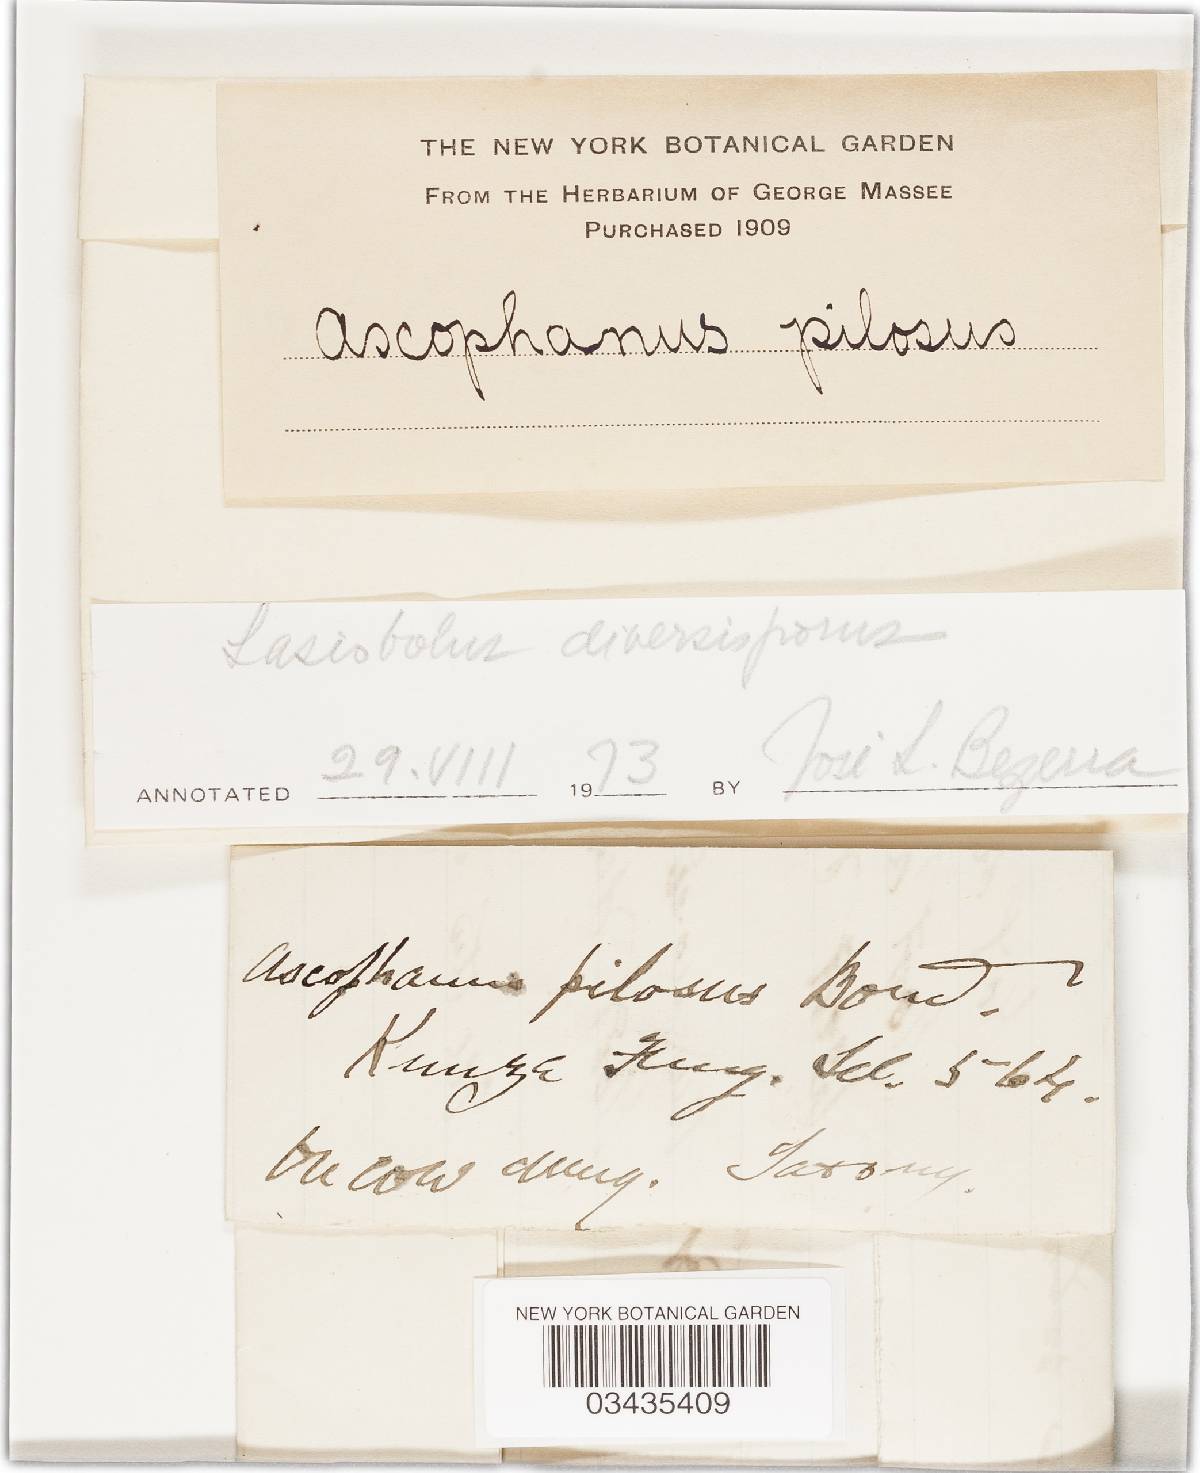 THE NEW YORK BOTANICAL GARDEN
FROM THE HERBARIUM OF GEORGE MASSEE
PURCHASED 1909
Ascophanus pilosus
Lasiobolus diversisporus
ANNOTATED 29.VIII 1973 BY José L. Bezerra
Ascophanus pilosus Boud.
Kunze Fung. Sel. 564.
On cow dung. Saxony.
NEW YORK BOTANICAL GARDEN
03435409